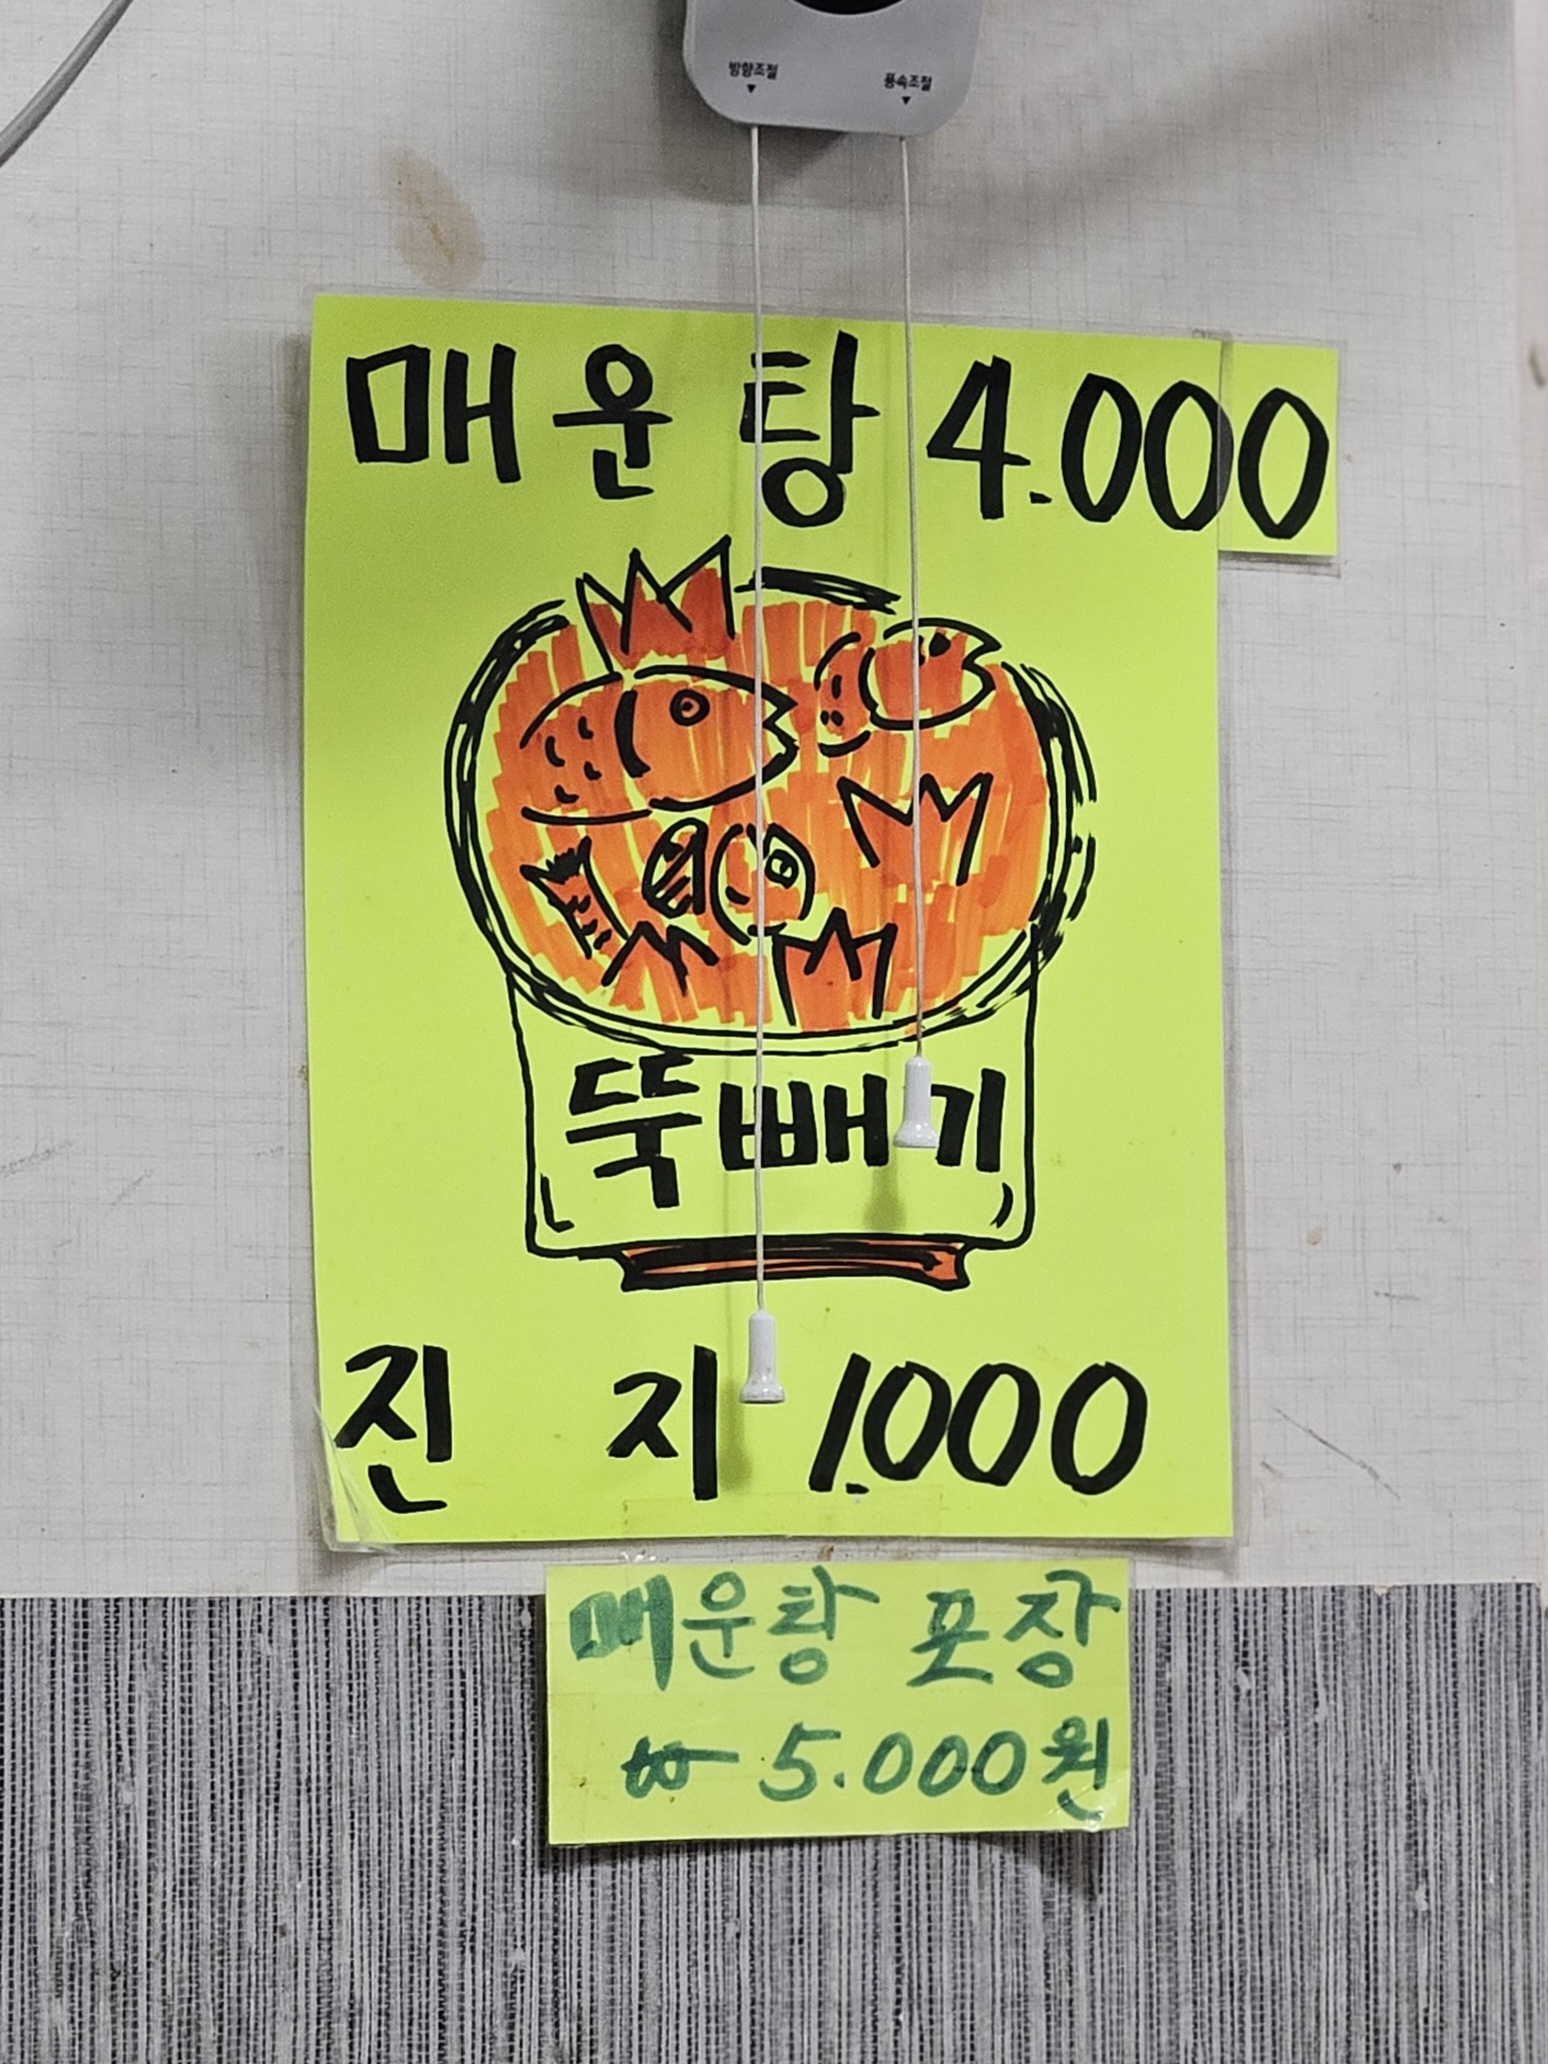 방향조절 풍속조절
매운탕 4.000
뚝빼기
진지 1.000
매운탕 포장
₩ 5.000원